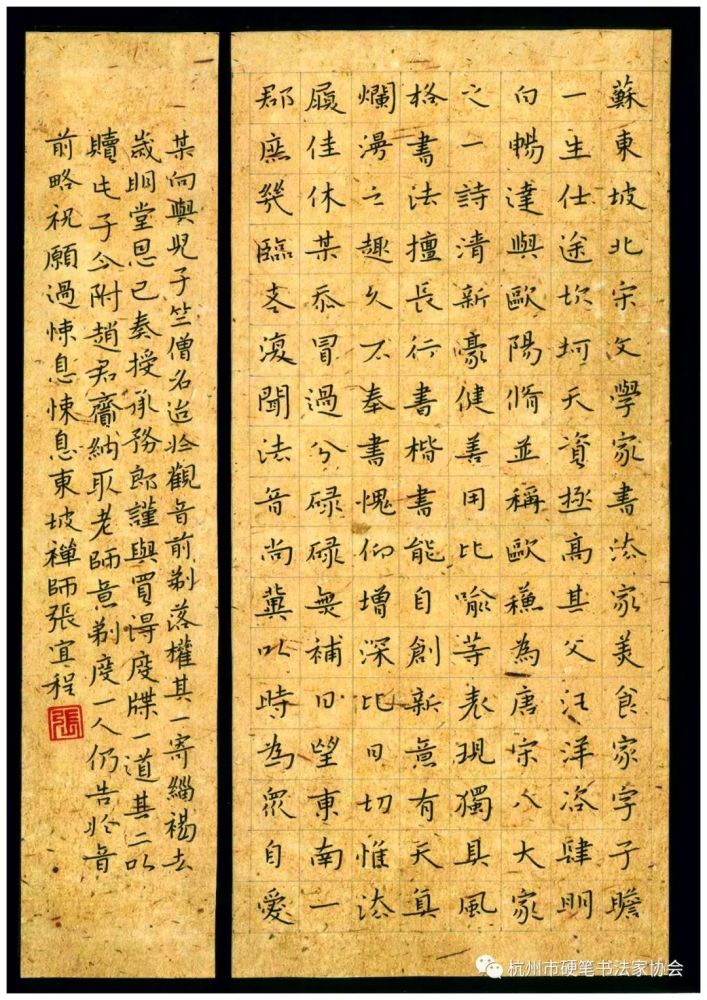 蘇東坡北宋文學家書法家美食家字子瞻
一生仕途坎坷天資極高其文汪洋恣肆明
白暢達與歐陽脩並稱歐蘇為唐宋八大家
之一詩清新豪健善用比喻等表現獨具風
格書法擅長行書楷書能自創新意有天真
爛漫之趣久不奉書愧仰增深比日切惟法
履佳休某忝冒過分碌碌無補日望東南一
郡庶幾臨老復聞法音尚冀以時為眾自愛
某向與兒子竺僧名迨於觀音前剃落權其一寄緇褐去
歲明堂恩已奏授承務郎謹與買得度牒一道其二以
贖此子今附趙君齎納取老師意剃度一人仍告於音
前略祝願過悚息悚息東坡禪師張宜程
張
杭州市硬笔书法家协会